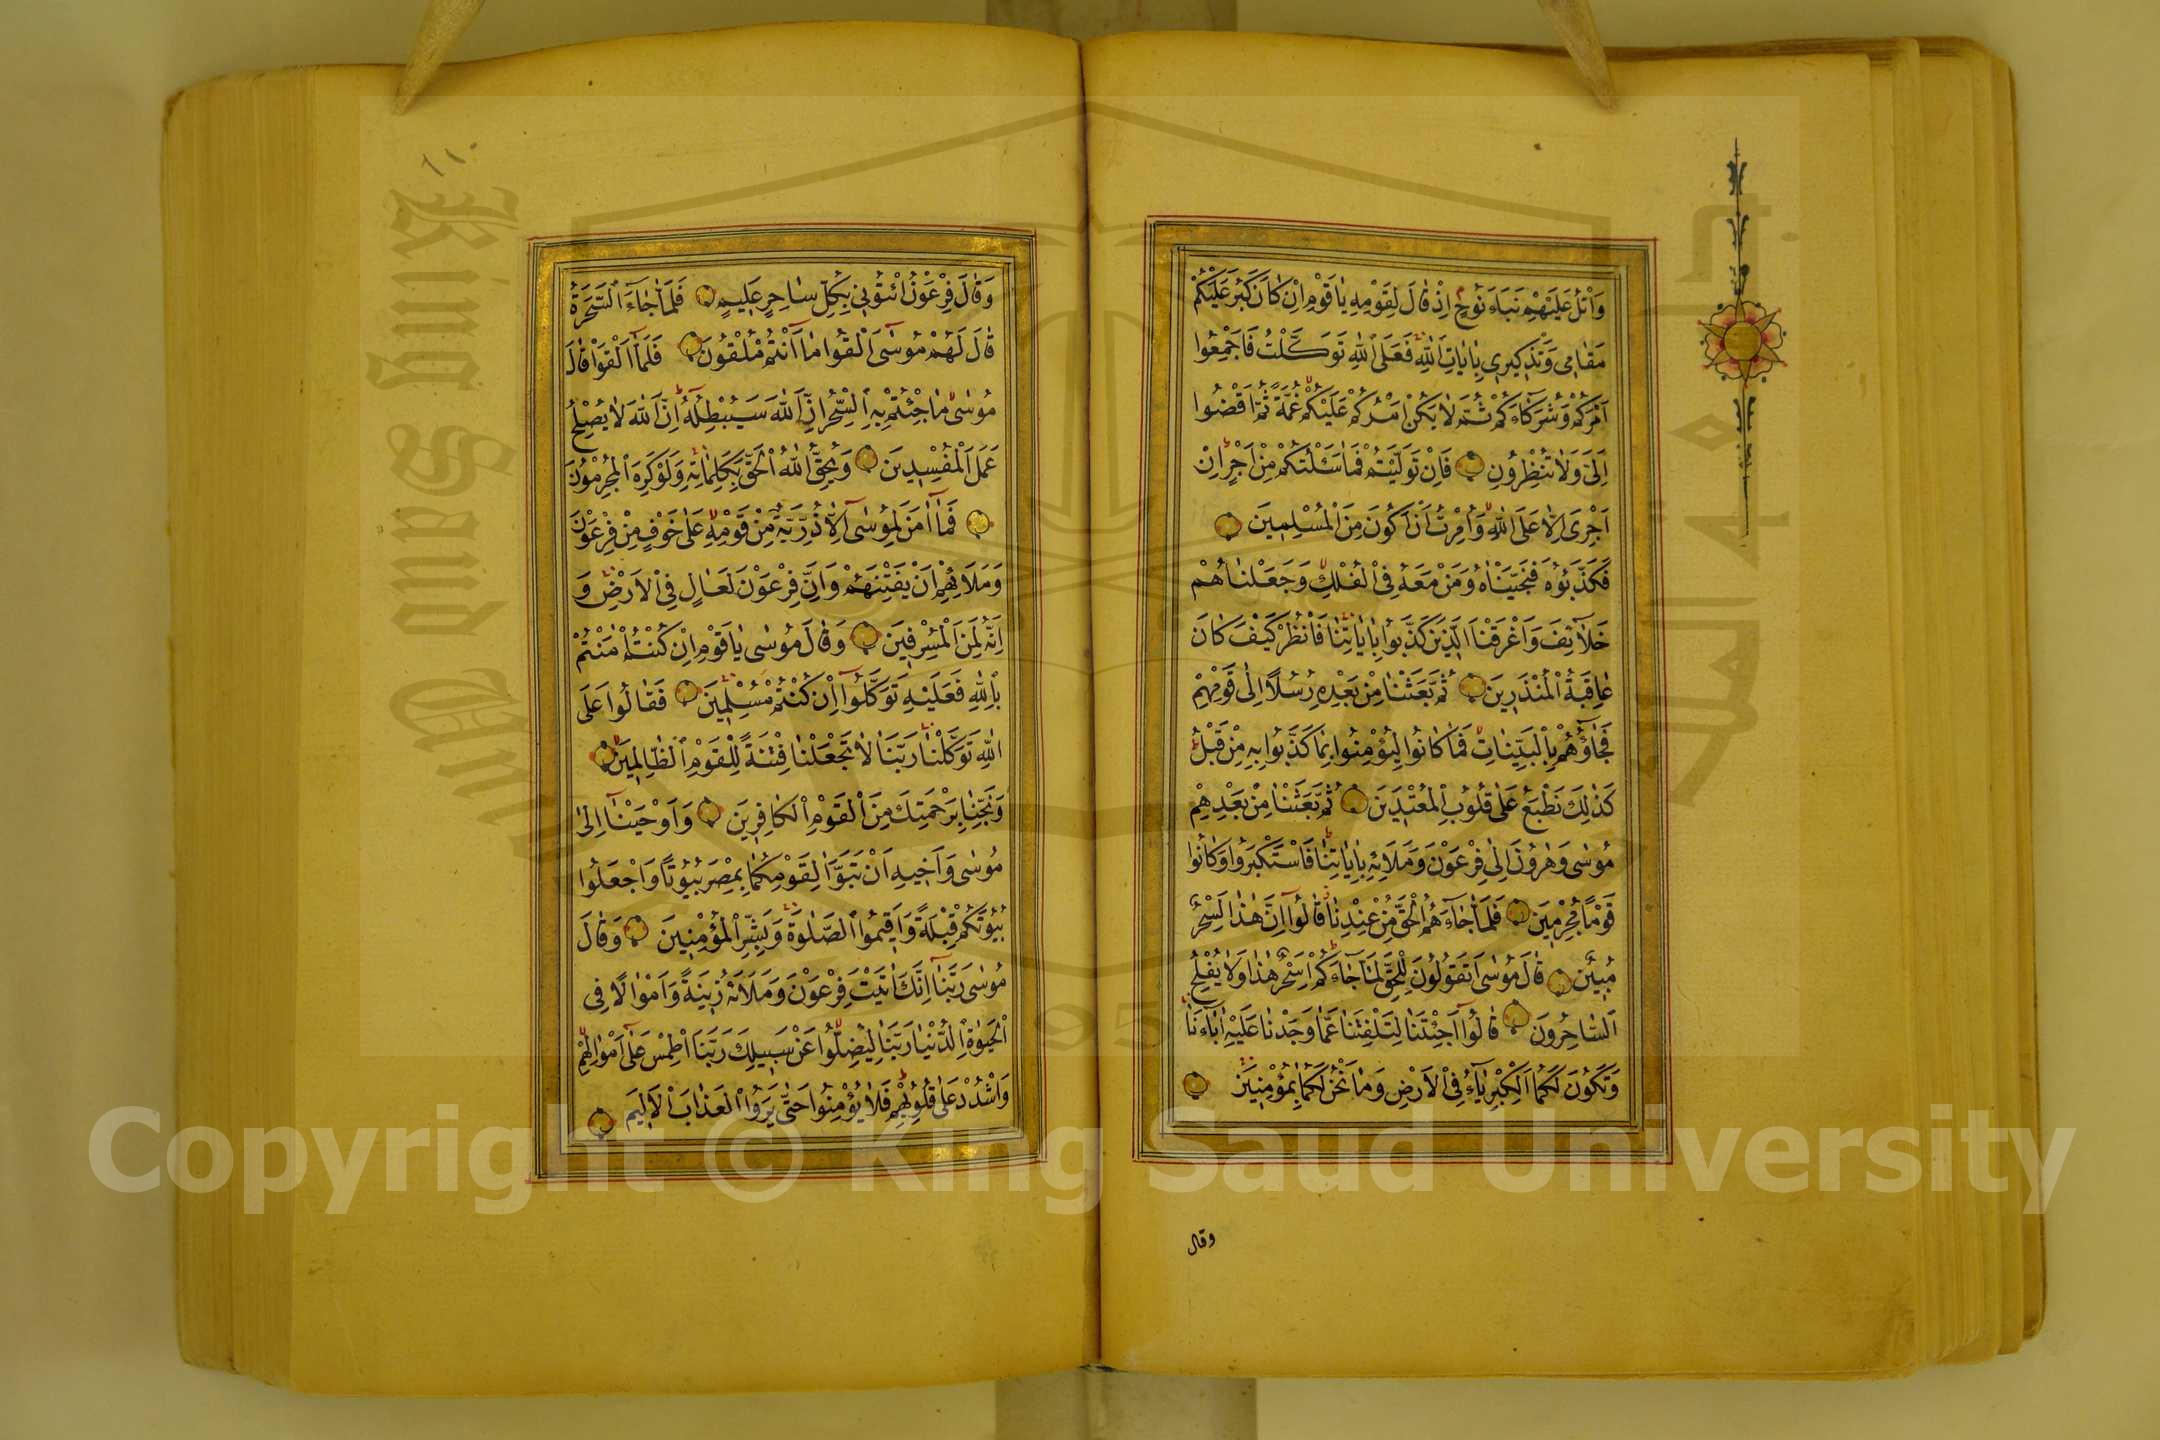 وَاتْلُ عَلَيْهِمْ نَبَاَ نُوحٍ اِذْ قَالَ لِقَوْمِهِ يَا قَوْمِ اِنْ كَانَ كَبُرَ عَلَيْكُمْ
مَقَامِي وَتَذْكِيرِي بِاٰيَاتِ اللّٰهِ فَعَلَى اللّٰهِ تَوَكَّلْتُ فَاَجْمِعُوا
اَمْرَكُمْ وَشُرَكَاءَكُمْ ثُمَّ لَا يَكُنْ اَمْرُكُمْ عَلَيْكُمْ غُمَّةً ثُمَّ اقْضُوا
اِلَيَّ وَلَا تُنْظِرُونِ فَاِنْ تَوَلَّيْتُمْ فَمَا سَئَلْتُكُمْ مِنْ اَجْرٍ اِنْ
اَجْرِيَ اِلَّا عَلَى اللّٰهِ وَاُمِرْتُ اَنْ اَكُونَ مِنَ الْمُسْلِمِينَ
فَكَذَّبُوهُ فَنَجَّيْنَاهُ وَمَنْ مَعَهُ فِي الْفُلْكِ وَجَعَلْنَاهُمْ
خَلَائِفَ وَاَغْرَقْنَا الَّذِينَ كَذَّبُوا بِاٰيَاتِنَا فَانْظُرْ كَيْفَ كَانَ
عَاقِبَةُ الْمُنْذَرِينَ ثُمَّ بَعَثْنَا مِنْ بَعْدِهِ رُسُلًا اِلَى قَوْمِهِمْ
فَجَاؤُهُمْ بِالْبَيِّنَاتِ فَمَا كَانُوا لِيُؤْمِنُوا بِمَا كَذَّبُوا بِهِ مِنْ قَبْلُ
كَذٰلِكَ نَطْبَعُ عَلَى قُلُوبِ الْمُعْتَدِينَ ثُمَّ بَعَثْنَا مِنْ بَعْدِهِمْ
مُوسٰى وَهٰرُونَ اِلٰى فِرْعَوْنَ وَمَلَائِهِ بِاٰيَاتِنَا فَاسْتَكْبَرُوا وَكَانُوا
قَوْمًا مُجْرِمِينَ فَلَمَّا جَاءَهُمُ الْحَقُّ مِنْ عِنْدِنَا قَالُوا اِنَّ هٰذَا لَسِحْرٌ
مُبِينٌ قَالَ مُوسٰى اَتَقُولُونَ لِلْحَقِّ لَمَّا جَاءَكُمْ اَسِحْرٌ هٰذَا وَلَا يُفْلِحُ
السَّاحِرُونَ قَالُوا اَجِئْتَنَا لِتَلْفِتَنَا عَمَّا وَجَدْنَا عَلَيْهِ اٰبَاءَنَا
وَتَكُونَ لَكُمَا الْكِبْرِيَاءُ فِي الْاَرْضِ وَمَا نَحْنُ لَكُمَا بِمُؤْمِنِينَ
وقال
٢١٠
وَقَالَ فِرْعَوْنُ ائْتُونِي بِكُلِّ سَاحِرٍ عَلِيمٍ فَلَمَّا جَاءَ السَّحَرَةُ
قَالَ لَهُمْ مُوسٰى اَلْقُوا مَا اَنْتُمْ مُلْقُونَ فَلَمَّا اَلْقَوْا قَالَ
مُوسٰى مَا جِئْتُمْ بِهِ السِّحْرُ اِنَّ اللّٰهَ سَيُبْطِلُهُ اِنَّ اللّٰهَ لَا يُصْلِحُ
عَمَلَ الْمُفْسِدِينَ وَيُحِقُّ اللّٰهُ الْحَقَّ بِكَلِمَاتِهِ وَلَوْ كَرِهَ الْمُجْرِمُونَ
فَمَا اٰمَنَ لِمُوسٰى اِلَّا ذُرِّيَّةٌ مِنْ قَوْمِهِ عَلٰى خَوْفٍ مِنْ فِرْعَوْنَ
وَمَلَائِهِمْ اَنْ يَفْتِنَهُمْ وَاِنَّ فِرْعَوْنَ لَعَالٍ فِي الْاَرْضِ وَ
اِنَّهُ لَمِنَ الْمُسْرِفِينَ وَقَالَ مُوسٰى يَا قَوْمِ اِنْ كُنْتُمْ اٰمَنْتُمْ
بِاللّٰهِ فَعَلَيْهِ تَوَكَّلُوا اِنْ كُنْتُمْ مُسْلِمِينَ فَقَالُوا عَلَى
اللّٰهِ تَوَكَّلْنَا رَبَّنَا لَا تَجْعَلْنَا فِتْنَةً لِلْقَوْمِ الظَّالِمِينَ
وَنَجِّنَا بِرَحْمَتِكَ مِنَ الْقَوْمِ الْكَافِرِينَ وَاَوْحَيْنَا اِلٰى
مُوسٰى وَاَخِيهِ اَنْ تَبَوَّاٰ لِقَوْمِكُمَا بِمِصْرَ بُيُوتًا وَاجْعَلُوا
بُيُوتَكُمْ قِبْلَةً وَاَقِيمُوا الصَّلٰوةَ وَبَشِّرِ الْمُؤْمِنِينَ وَقَالَ
مُوسٰى رَبَّنَا اِنَّكَ اٰتَيْتَ فِرْعَوْنَ وَمَلَاَهُ زِينَةً وَاَمْوَالًا فِي
الْحَيٰوةِ الدُّنْيَا رَبَّنَا لِيُضِلُّوا عَنْ سَبِيلِكَ رَبَّنَا اطْمِسْ عَلٰى اَمْوَالِهِمْ
وَاشْدُدْ عَلٰى قُلُوبِهِمْ فَلَا يُؤْمِنُوا حَتّٰى يَرَوُا الْعَذَابَ الْاَلِيمَ
Copyright © King Saud University